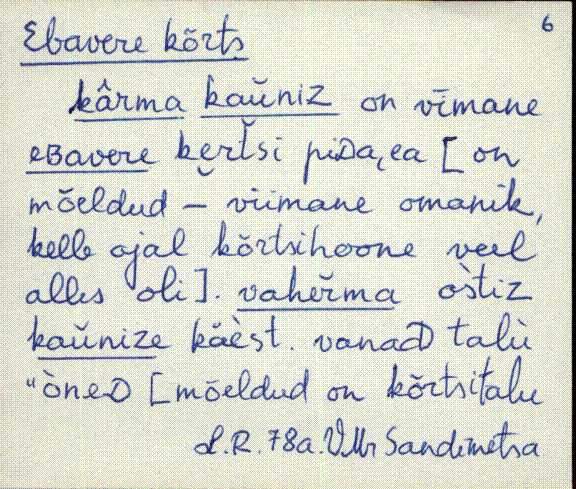 6
Ebavere kõrts
kârma kaŭniz on vīmane
eBavere ke̮rt̆si piDa,ea [on
mõeldud – viimane omanik,
kelle ajal kõrtsihoone veel
alles oli]. vaheřma òstiz
kaŭnize käèst. vanaD talù
"òneD [mõeldud on kõrtsitalu
L.R. 78a. VMr Sandimetsa